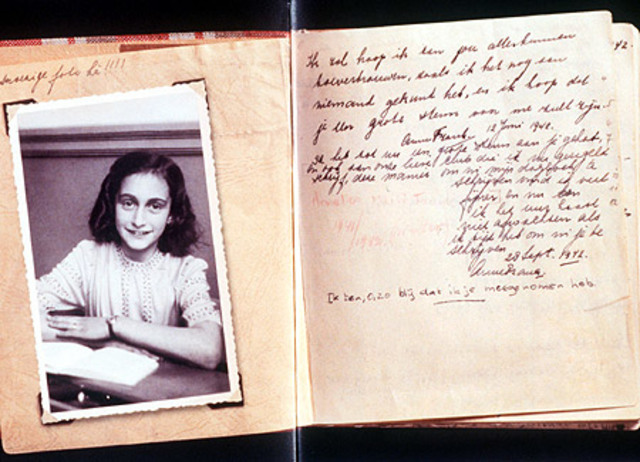 foto hè!!!!
Ik zal hoop ik aan jou alles kunnen
toevertrouwen, zoals ik het nog aan
niemand gekund heb, en ik hoop dat
je een grote steun voor me zult zijn.
Anne Frank. 12 Juni 1942.
Ik heb tot nu een grote steun aan je gehad,
en ook aan onze lieve club die ik nu geregeld
schrijf, deze manier om in mijn dagboek te
schrijven vind ik veel
fijner en nu kan
ik het uur haast
niet afwachten als
ik tijd heb om in je te
schrijven.
28 Sept. 1942.
Anne Frank.
Ik ben, o, zo blij dat ik je meegenomen heb.